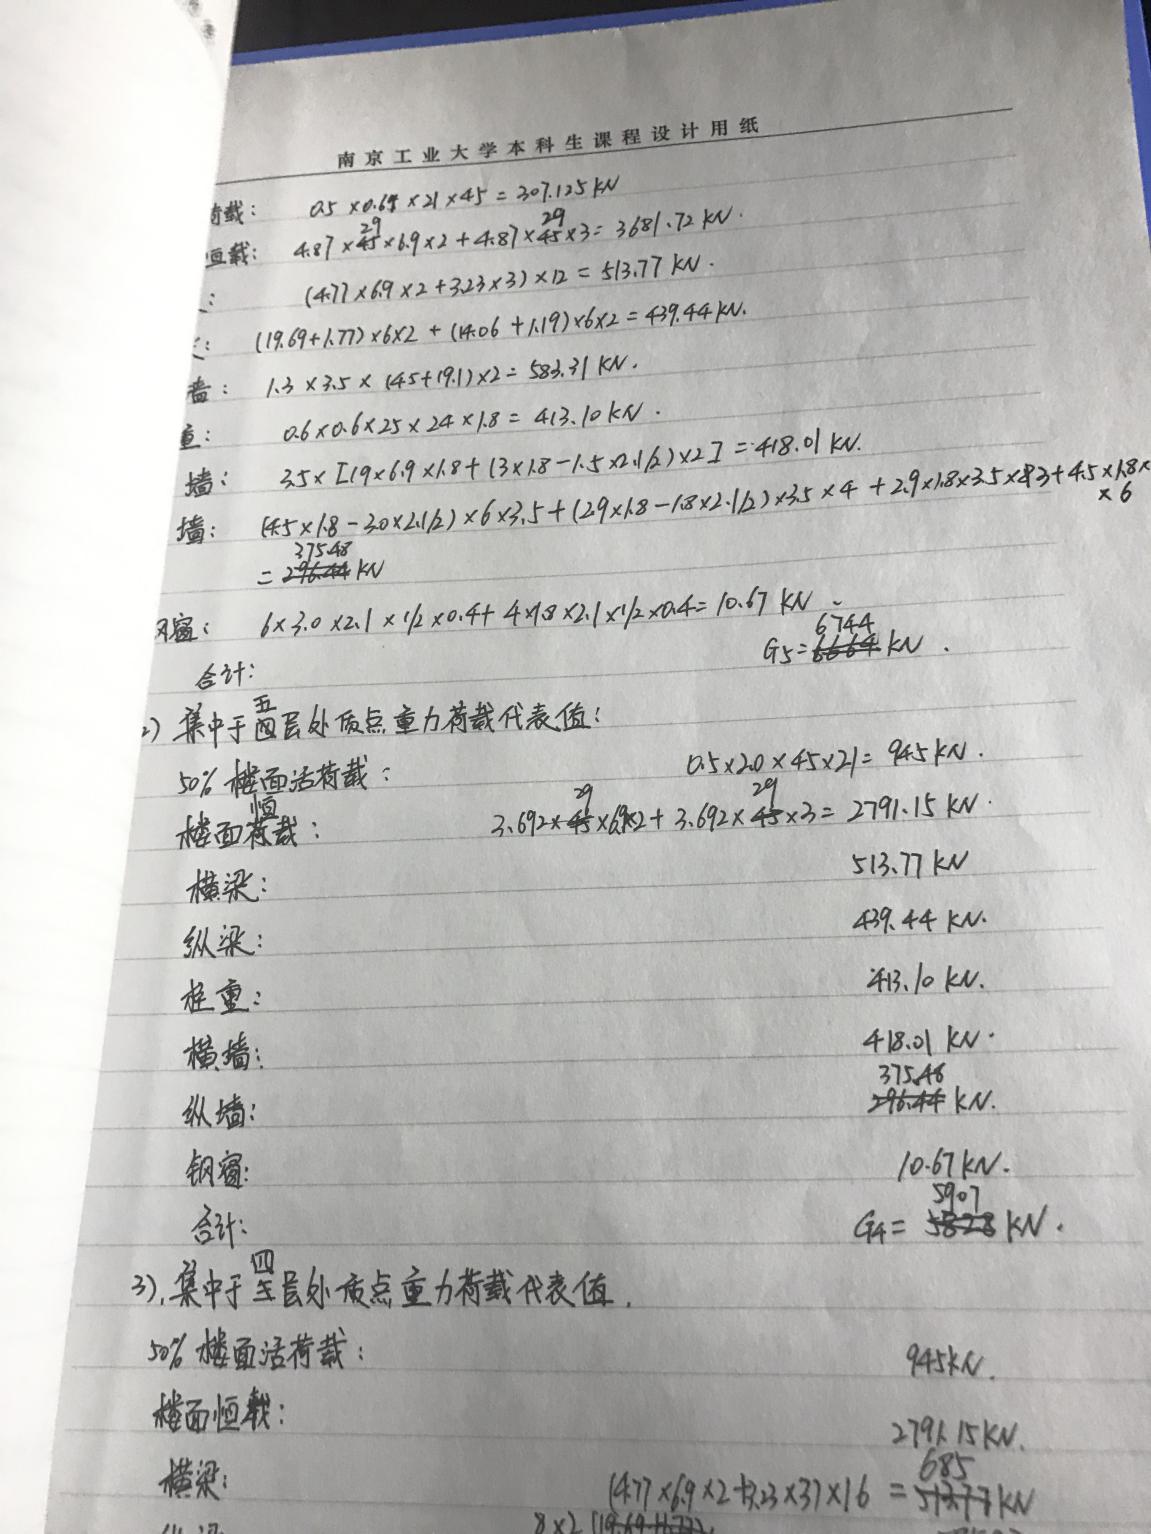 南京工业大学本科生课程设计用纸
荷载: 0.5×0.65×21×45=307.125kN
恒载: 4.87×45×6.9×2+4.87×45×3=3681.72kN.
29 29
: (4.77×6.9×2+3.23×3)×12=513.77kN.
: (19.69+1.77)×6×2+(14.06+1.19)×6×2=439.44kN.
墙: 1.3×3.5×(45+19.1)×2=583.31kN.
重: 0.6×0.6×25×24×1.8=413.10kN.
墙: 3.5×[19×6.9×1.8+(3×1.8-1.5×2.1/2)×2]=418.01kN.
墙: (4.5×1.8-3.0×2.1/2)×6×3.5+(2.9×1.8-1.8×2.1/2)×3.5×4+2.9×1.8×3.5×3+4.5×1.8×
×6
375.48
=296.44kN
窗: 6×3.0×2.1×1/2×0.4+4×1.8×2.1×1/2×0.4=10.67kN
6744
合计: G5=6664kN.
五
2) 集中于四层处质点重力荷载代表值:
50%楼面活荷载: 0.5×2.0×45×21=945kN.
恒 29 29
楼面荷载: 3.692×45×6.9×2+3.692×45×3=2791.15kN.
横梁: 513.77kN
纵梁: 439.44kN.
柱重: 413.10kN.
横墙: 418.01kN.
375.48
纵墙: 296.44kN.
钢窗: 10.67kN.
5907
合计: G4=5828kN.
四
3).集中于三层处质点重力荷载代表值.
50%楼面活荷载: 945kN.
楼面恒载: 2791.15kN.
685
横梁: (4.77×6.9×2+3.23×3)×16=513.77kN
8×2(19.69+1.77)